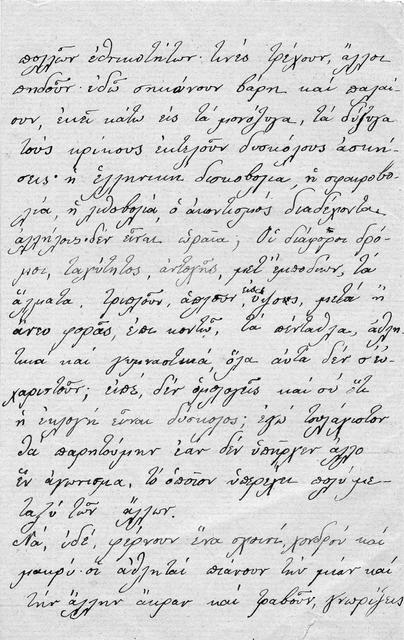 πολλῶν ἐθνικοτήτων· τινὲς τρέχουν, ἄλλοι
πηδοῦν· ἐδῶ σηκώνουν βάρη καὶ παλαί-
ουν, ἐκεῖ κάτω εἰς τὰ μονόζυγα, τὰ δίζυγα
τοὺς κρίκους ἐκτελοῦν δυσκόλους ἀσκή-
σεις· ἡ ἑλληνικὴ δισκοβολία, ἡ σφαιροβο-
λία, ἡ λιθοβολία, ὁ ἀκοντισμὸς διαδέχονται
ἀλλήλους· δὲν εἶναι ὡραῖα; Οἱ διάφοροι δρό-
μοι, ταχύτητος, ἀντοχῆς, μετ' ἐμποδίων, τὰ
ἅλματα, τριπλοῦν, ἁπλοῦν, εἰς ὕψος, μετὰ ἢ
ἄνευ φορᾶς, ἐπὶ κοντῷ, τὰ πένταθλα, ἀθλη-
τικὰ καὶ γυμναστικά, ὅλα αὐτὰ δὲν σ' εὐ-
χαριστοῦν; εἰπέ, δὲν ὁμολογεῖς καὶ σὺ ὅτι
ἡ ἐκλογὴ εἶναι δύσκολος; ἐγὼ τουλάχιστον
θὰ παρητούμην ἐὰν δὲν ὑπῆρχεν ἄλλο
ἓν ἀγώνισμα, τὸ ὁποῖον ὑπερέχει πολὺ με-
ταξὺ τῶν ἄλλων.
Νά, ἰδέ, φέρνουν ἕνα σχοινί, χονδρὸ καὶ
μακρύ· οἱ ἀθληταὶ πιάνουν τὴν μίαν καὶ
τὴν ἄλλην ἄκραν καὶ τραβοῦν, γνωρίζεις